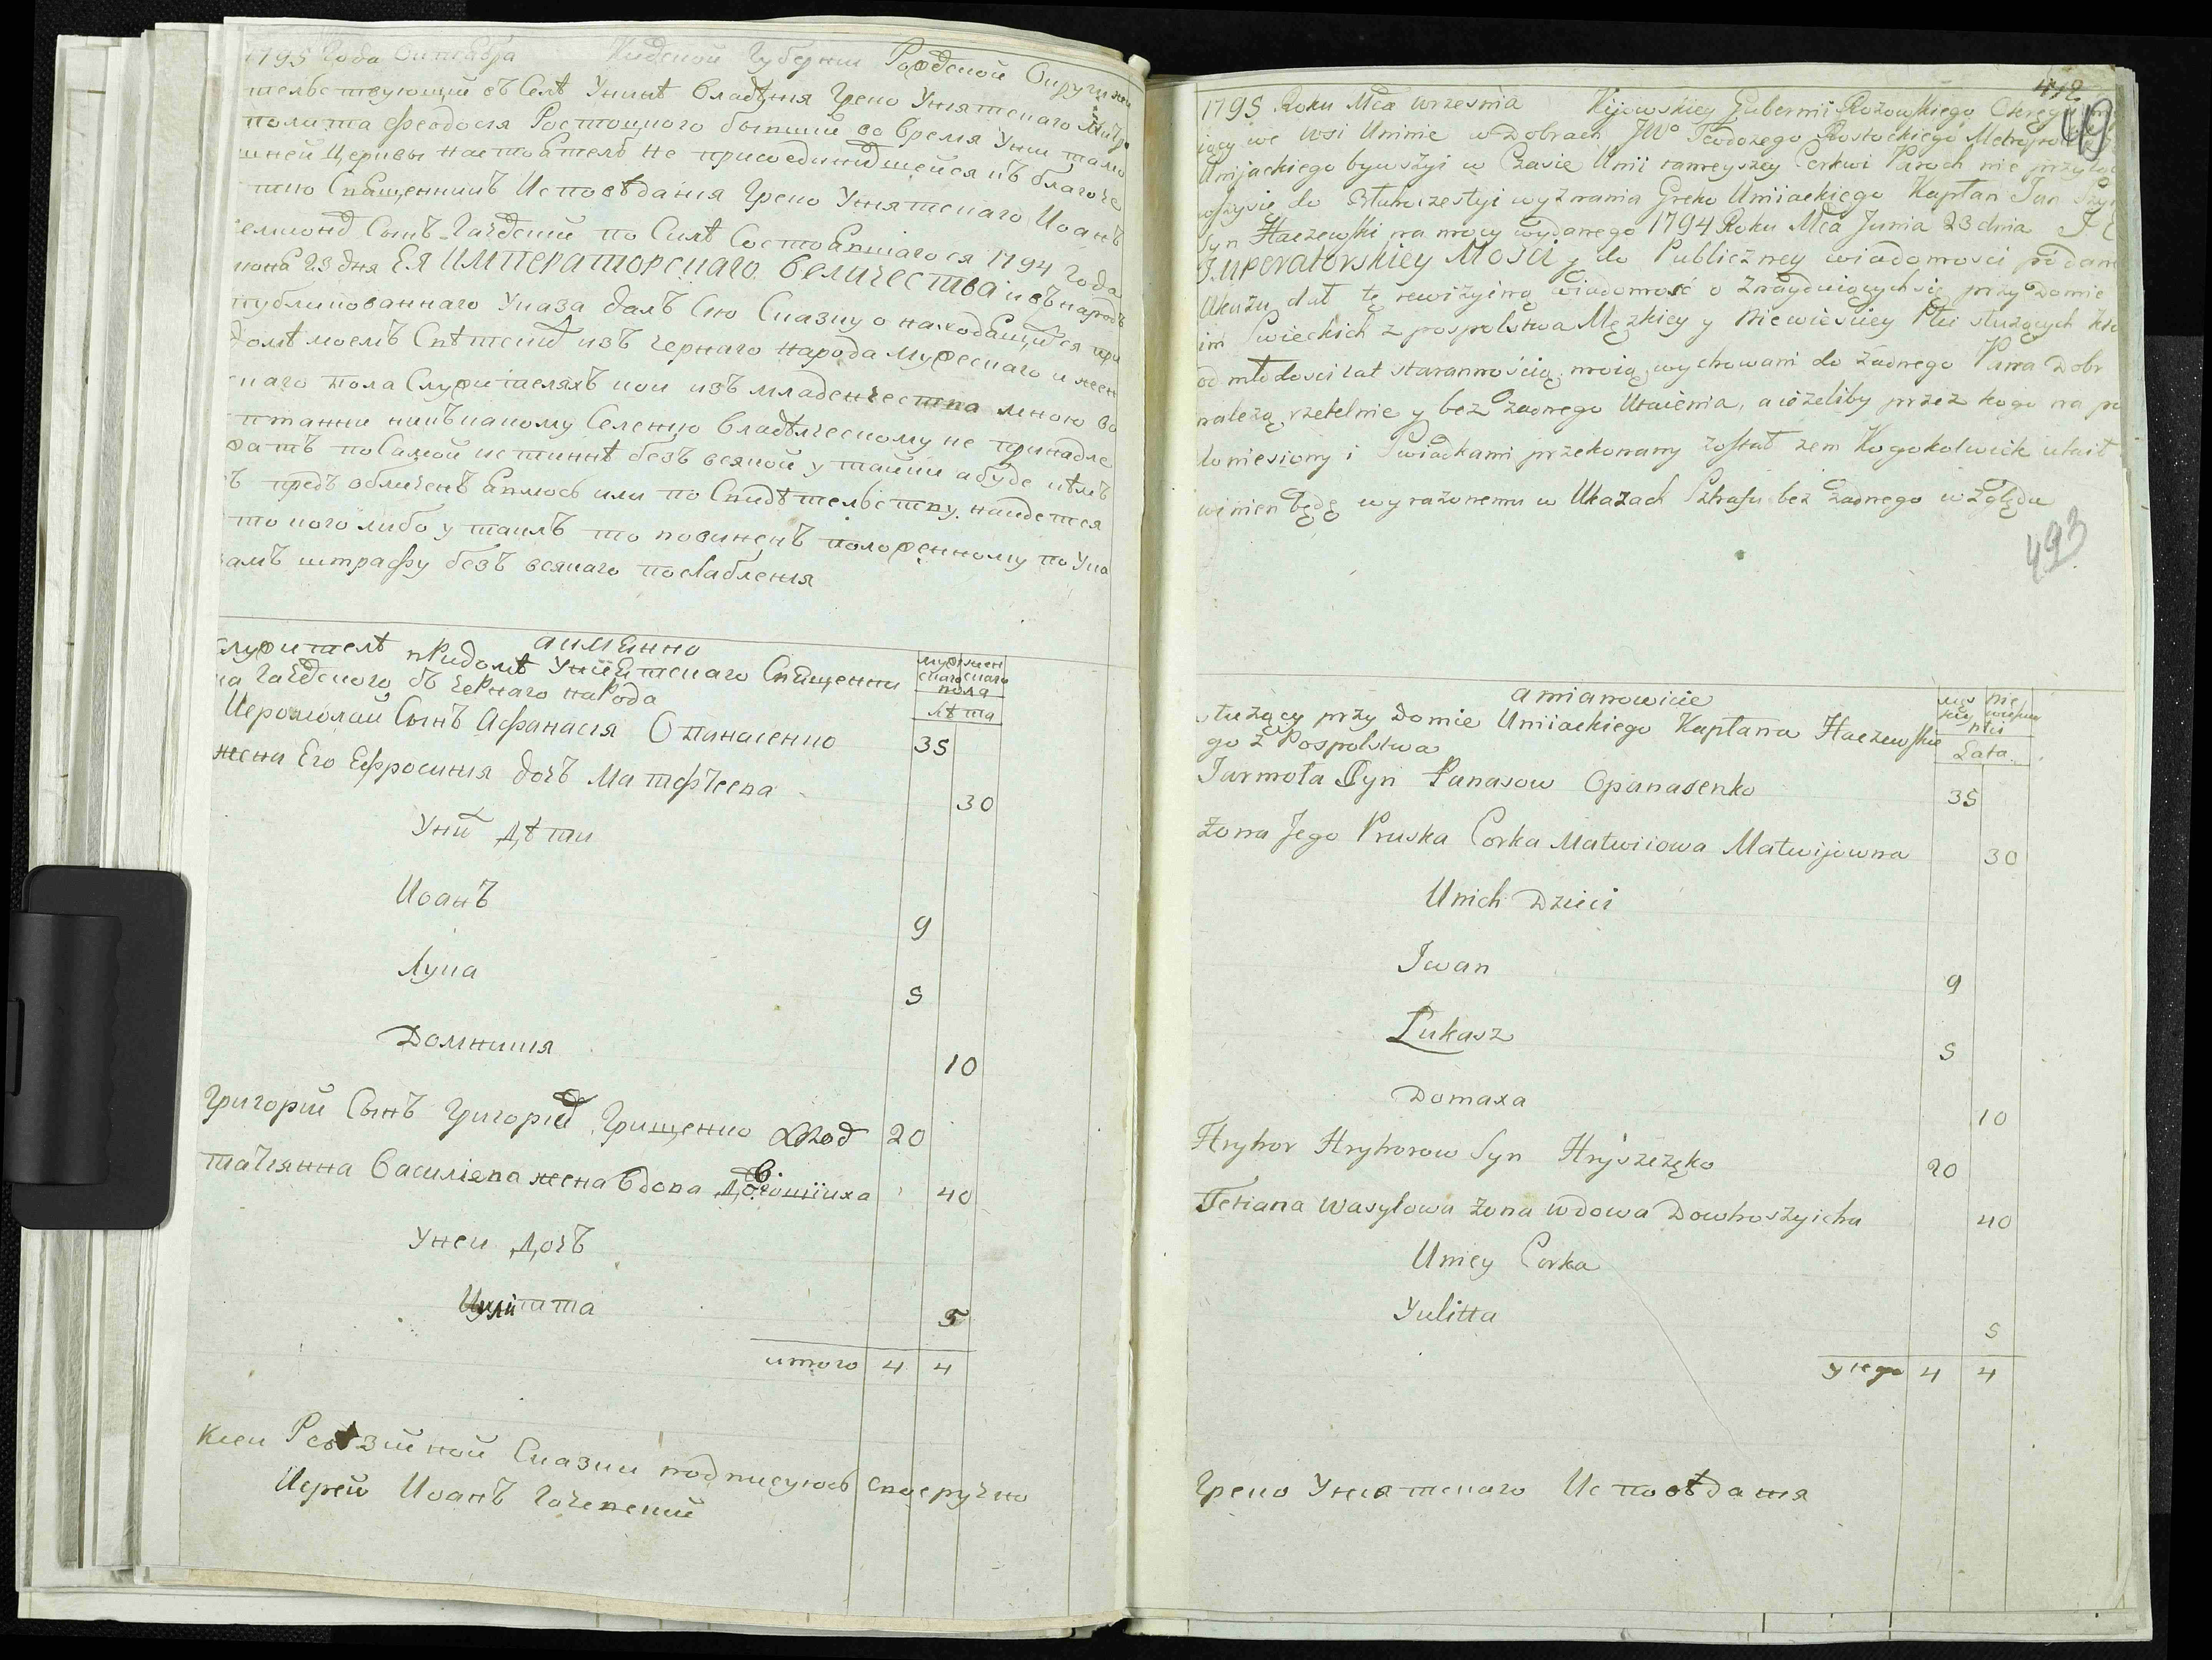 1795 Года Октября Киевской Губернии Рожевской Округи
тельствующий въ Селѣ Унинѣ Владѣния Греко Униятскаго Митро
полита Феодосия Ростоцкого бывший во время Унии тамо
шней Церквы настоятель не присоединившейся къ благоче
тию Священникъ Исповѣдания Греко Униятскаго Иоанъ
Сынъ Гачевский по Силѣ Состоявшагося 1794 Года
июня 23 дня Ея Императорскаго Величества и въ народъ
публикованнаго Указа далъ Сию Сказку о находящихся при
домѣ моемъ Свѣтских изъ чернаго народа мужескаго и жен
скаго пола Служителяхъ кои изъ младенчества мною во
питанни никъ какому Селению Владѣлческому не принадле
жатъ по Самой истиннѣ безъ всякой утайки а буде кѣмъ
въ предь обличенъ явлюсь или по Свидѣтельству найдется
что кого либо утаилъ то повиненъ положенному по Ука
замъ штрафу безъ всякаго послабления
аимянно
служителѣ при домѣ Униятскаго Священни
ка Гачевского съ чернаго народа
мужескаго женскаго
пола
лѣта
Иеромолай Сынъ Афанасия Опанасенко 35
жена Его Ефросиния дочь Матфѣева 30
У них дѣти
Иоанъ 9
Лука 5
Домникия 10
Григорий Сынъ Григорив Грищенко 20
татиянна Василиева жена вдова Довгошииха 40
У неи дочь
Иулитта 5
итого 4 4
К сеи Ревѣзийной Сказки подписуюсь своеручно
Иерей Иоанъ Гачевский
412
1795 Roku Mca Wrzesnia Kijowskiey Gubernii Rożowskiego Okręgu
iący we Wsi Uninie w Dobrach JWo Teodozego Rostockiego Metropol
Unijackiego bywszyi w Czasie Unii tameyszey Cerkwi Paroch nie przyłą
wszysie do wyznania Greko Uniiackiego Kapłan Jan
Syn Haczewski na mocy wydanego 1794 Roku Mca Junia 23 dnia
Imperatorskiey Mości y do Publiczney wiadomosci podane
Ukazu dał tę rewizyiną wiadomość o Znayduiącychsię przy Domie
im Swieckich z pospolstwa Męzkiey y Niewiesciey Płci służących
od młodosci lat starannością moią wychowani do żadnego Pana Dobr
należą rzetelnie y bez żadnego Utaienia, a ieżeliby przez kogo na po
doniesiony i Swiadkami przekonany został żem Kogokolwiek utait
winien będę wyrażonemu w Ukazach Sztrafu bez żadnego względu
493
amianowicie
służący przy Domie Uniiackiego Kapłana Haczewskie
go z Pospolstwa
męzkiey niewiesciey
płci
Lata
Jarmoła Syn Panasow Opanasenko 35
żona Jego Pruska Corka Matwiiowa Matwijowna 30
Unich Dzieci
Iwan 9
Łukasz 5
Domaxa 10
Hryhor Hryhorow Syn Hryszczęko 20
Tetiana Wasylowa żona wdowa Dowhoszyicha 40
Uniey Corka
Yulitta 5
4 4
Греко Униатскаго Исповѣдания